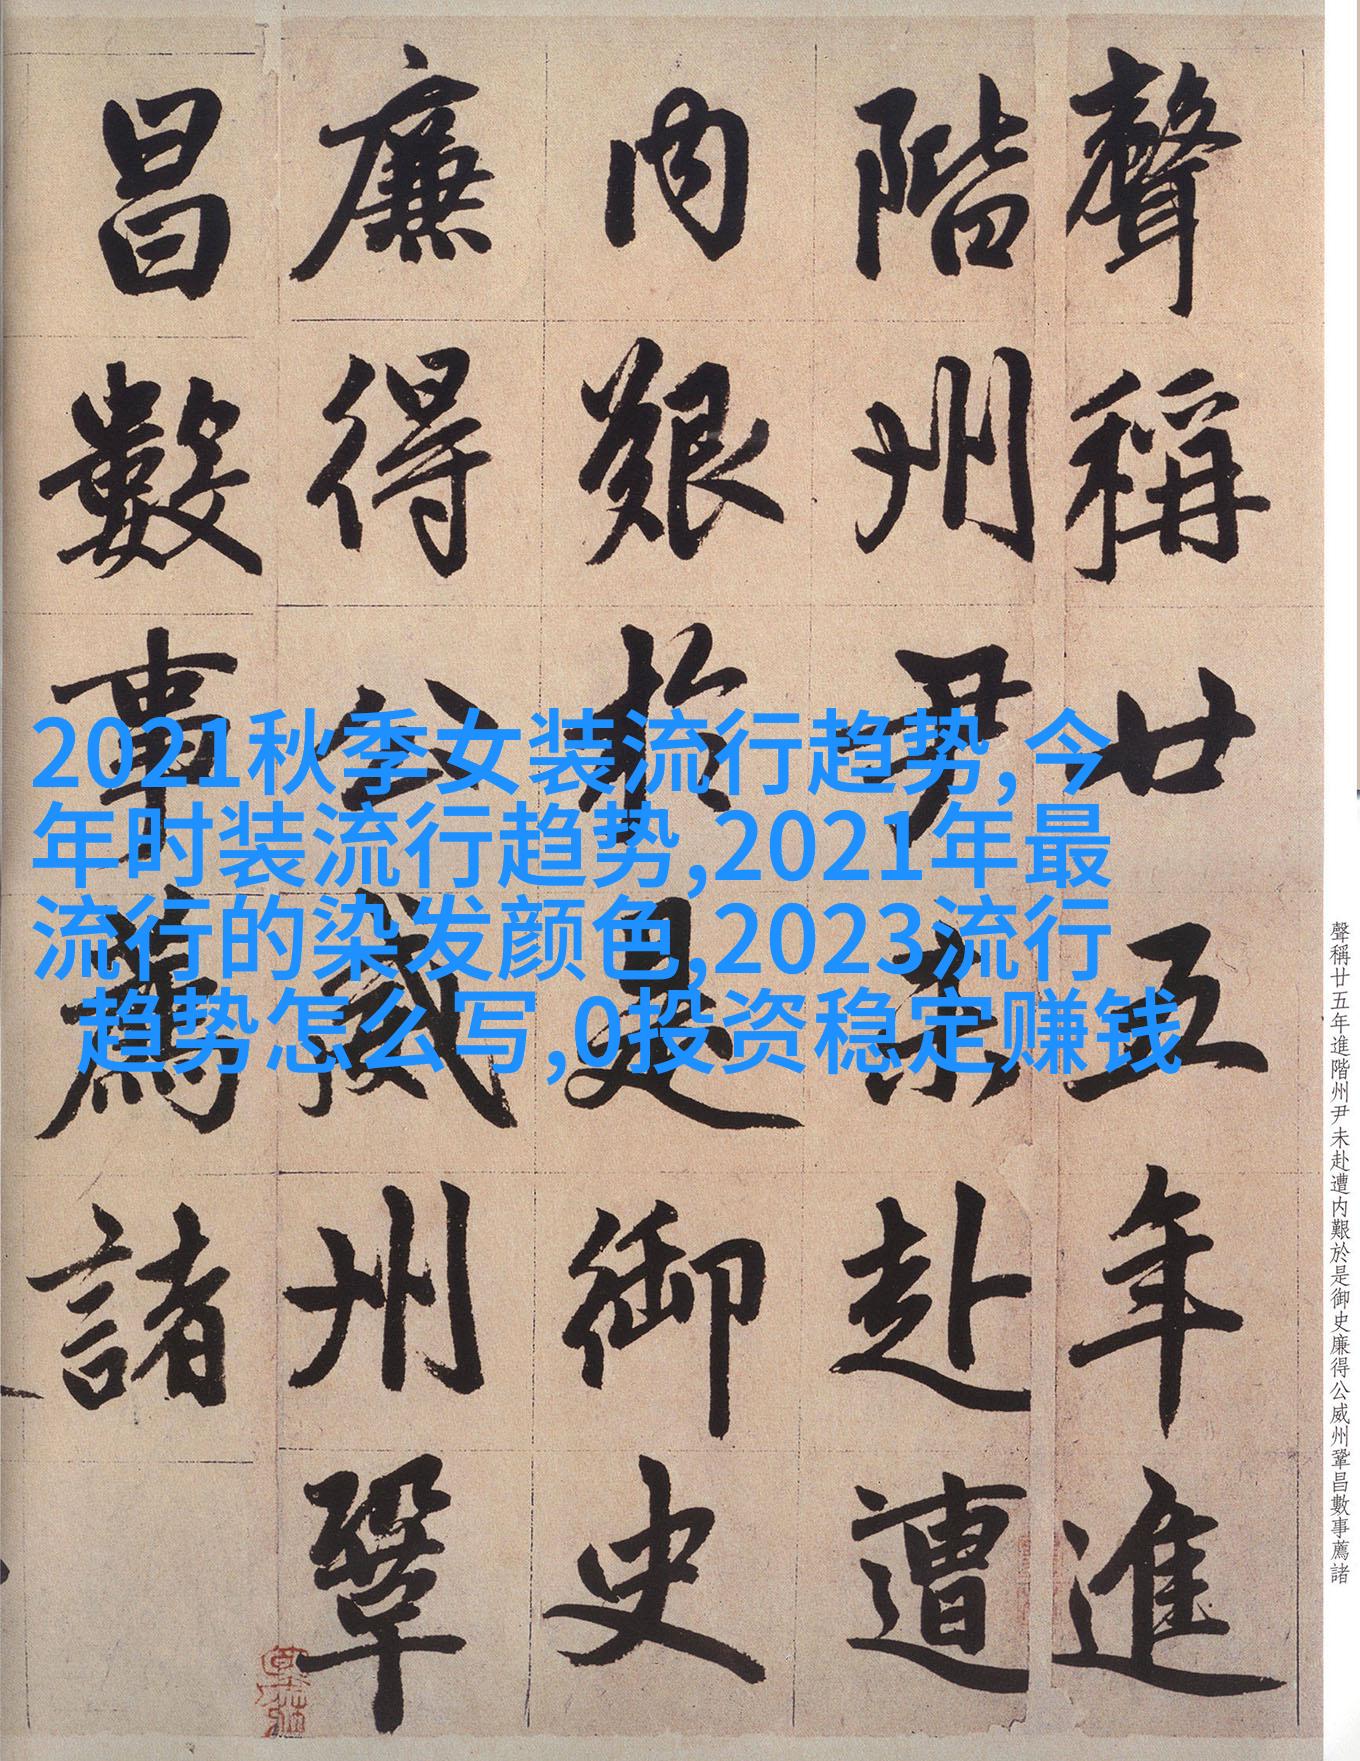 聲稱廿五年進
階州尹未赴遭
内艱於是御史
廉得公威州鞏
昌數事薦諸
2021秋季女装流行趋势,今
年时装流行趋势,2021年最
流行的染发颜色,2023流行
趋势怎么写,0投资稳定赚钱
聲稱廿五年進階州尹未赴遭内艱於是御史廉得公威州鞏昌數事薦諸